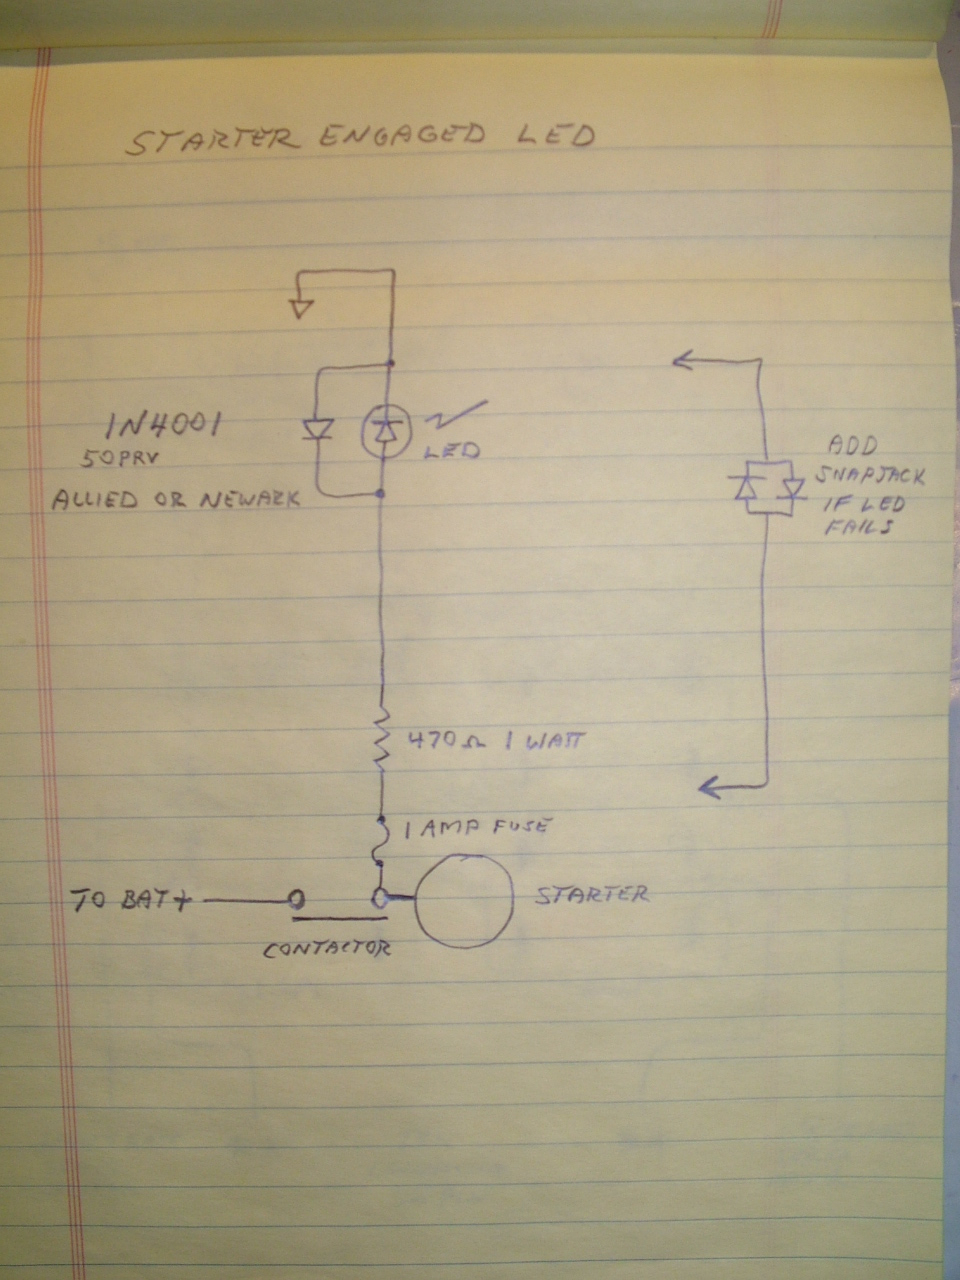 STARTER ENGAGED LED
1N4001
50PRV
ALLIED OR NEWARK
LED
ADD
SNAPJACK
IF LED
FAILS
470Ω 1 WATT
1 AMP FUSE
TO BAT +
STARTER
CONTACTOR